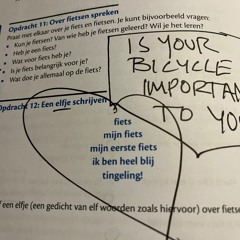 Opdracht 11: Over fietsen spreken
Praat met elkaar over je fiets en fietsen. Je kunt bijvoorbeeld vragen:
• Kun je fietsen? Van wie heb je fietsen geleerd? Wil je het leren?
• Heb je een fiets?
• Wat voor fiets heb je?
• Is je fiets belangrijk voor je?
• Wat doe je allemaal op de fiets?
IS YOUR
BICYCLE
IMPORTAN
TO YO
Opdracht 12: Een elfje schrijven
fiets
mijn fiets
mijn eerste fiets
ik ben heel blij
tingeling!
f een elfje (een gedicht van elf woorden zoals hiervoor) over fietse